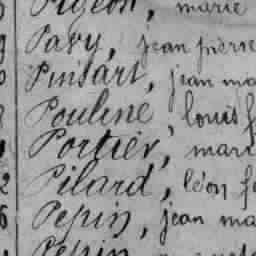 Pigeon, marie
Pavy, jean pierre
Puisart, jean ma
Pouline, louis f
Portier, mari
2 Pilard, léon f
6 Pepin, jean ma
Pepin